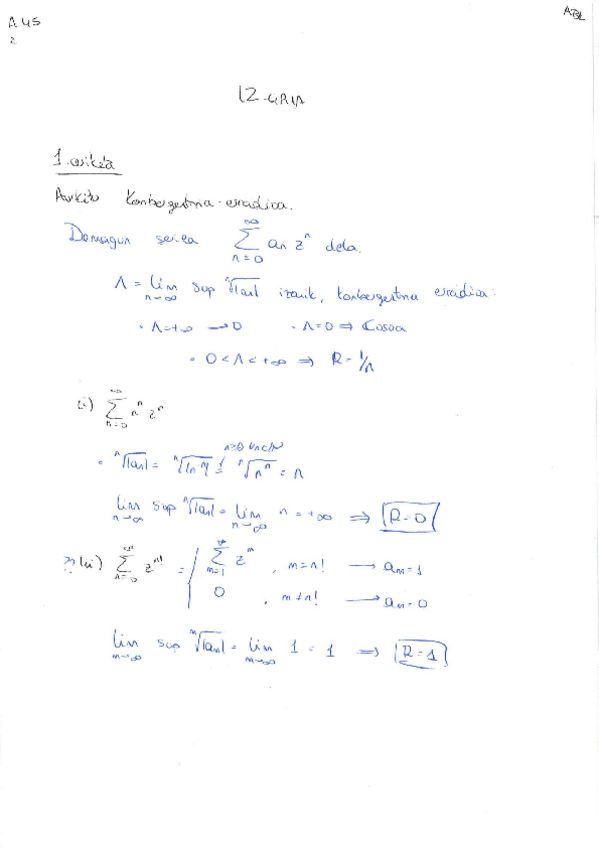 A45
2
ABL
1. ariketa
Aurkitu konbergentzia-erradioa.
Demagun seriea ∑_{n=0}^{∞} a_n z^n dela.
Λ = lim sup_{n→∞} ⁿ√|a_n| izanik, konbergentzia erradioa:
· Λ=+∞ → 0 · Λ=0 ⇒ Osoa
· 0<Λ<+∞ ⇒ R = 1/Λ
(i) ∑_{n=0}^{∞} n^n z^n
n≥0 ∀n∈ℕ
· ⁿ√|a_n| = ⁿ√|n^n| = ⁿ√n^n = n
lim sup_{n→∞} ⁿ√|a_n| = lim_{n→∞} n = +∞ ⇒ R=0
(ii) ∑_{n=0}^{∞} z^{n!} = { ∑_{m=1}^{∞} z^m , m=n! → a_m=1
0 , m≠n! → a_m=0
lim sup_{m→∞} ᵐ√|a_m| = lim_{m→∞} 1 = 1 ⇒ R=1